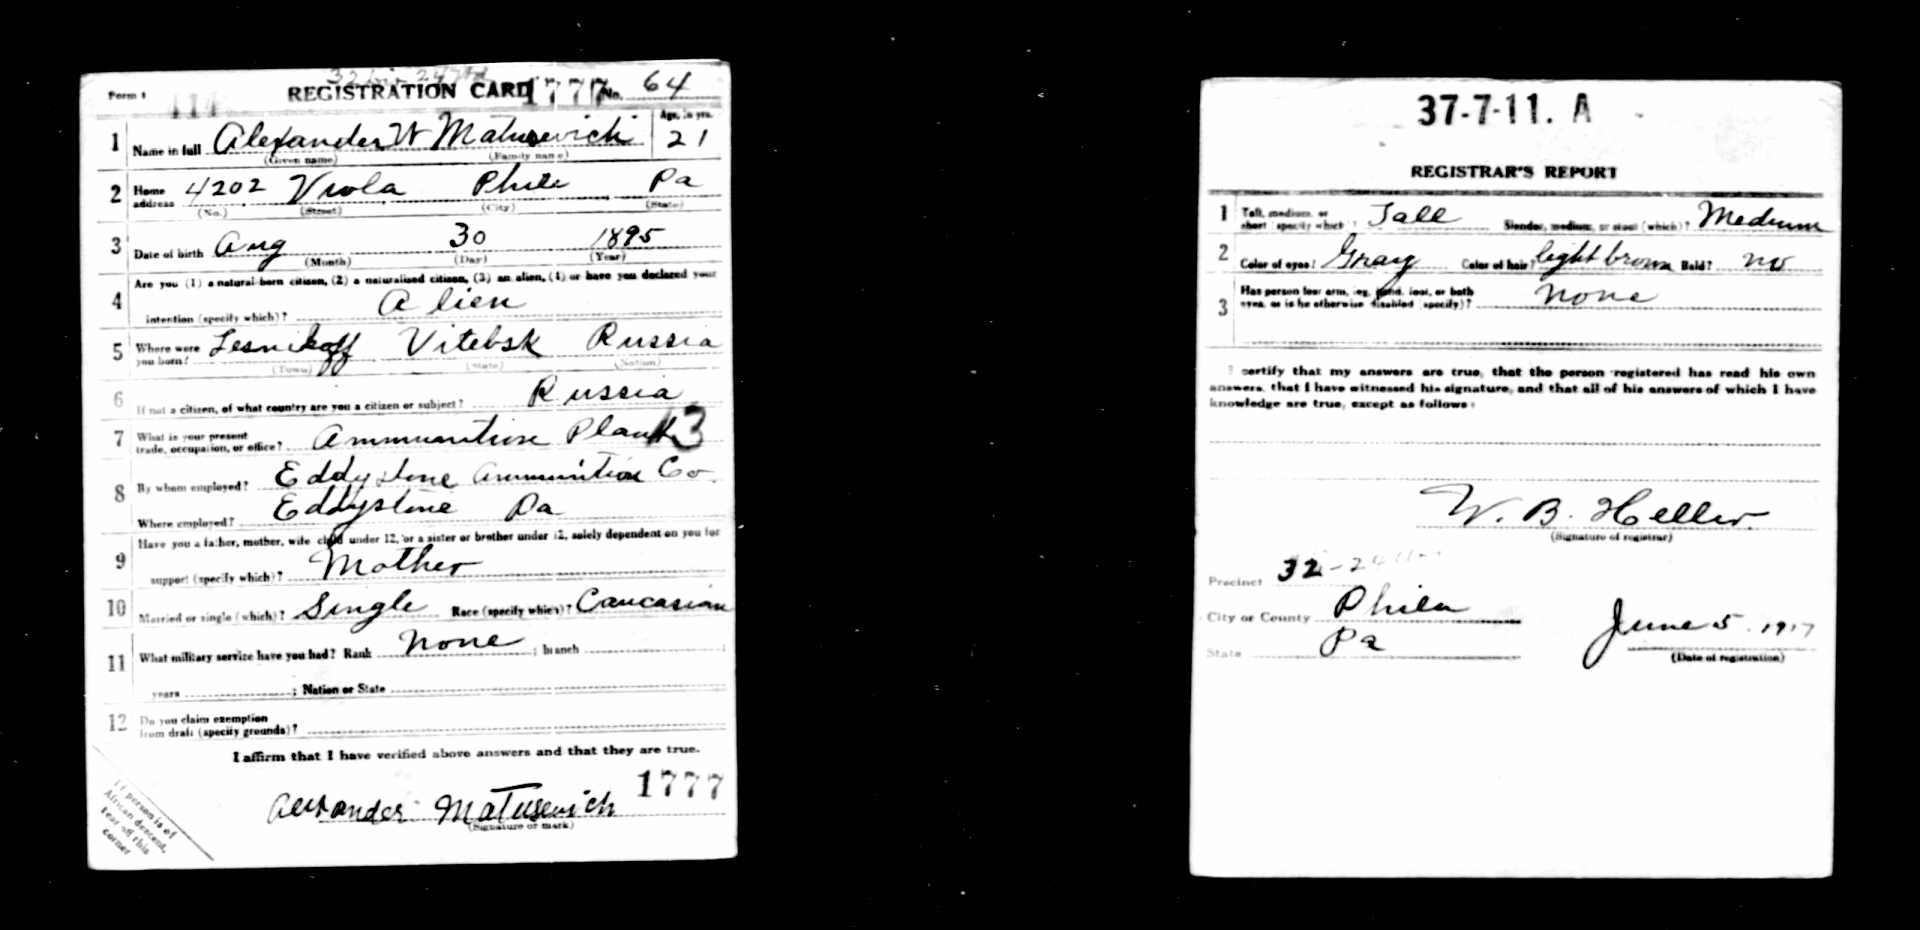 Form 1 REGISTRATION CARD 1777 No. 64
414
1 Name in full Alexander W Matusevich Age, in yrs. 21
(Given name) (Family name)
2 Home address 4202 Viola Phila Pa
(No.) (Street) (City) (State)
3 Date of birth Aug 30 1895
(Month) (Day) (Year)
4 Are you (1) a natural-born citizen, (2) a naturalized citizen, (3) an alien, (4) or have you declared your
intention (specify which)? Alien
5 Where were you born? Lesnikoff Vitebsk Russia
(Town) (State) (Nation)
6 If not a citizen, of what country are you a citizen or subject? Russia
7 What is your present trade, occupation, or office? Ammunition Plant 13
8 By whom employed? Eddystone Ammunition Co.
Where employed? Eddystone Pa
9 Have you a father, mother, wife child under 12, or a sister or brother under 12, solely dependent on you for
support (specify which)? Mother
10 Married or single (which)? Single Race (specify which)? Caucasian
11 What military service have you had? Rank none ; branch
years ; Nation or State
12 Do you claim exemption from draft (specify grounds)?
I affirm that I have verified above answers and that they are true.
1777
Alexander Matusevich
(Signature or mark)
If person is of
African descent,
tear off this
corner
37-7-11. A
REGISTRAR'S REPORT
1 Tall, medium, or short (specify which)? Tall Slender, medium, or stout (which)? Medium
2 Color of eyes? Gray Color of hair? light brown Bald? no
3 Has person lost arm, leg, hand, foot, or both eyes, or is he otherwise disabled (specify)? none
I certify that my answers are true, that the person registered has read his own
answers, that I have witnessed his signature, and that all of his answers of which I have
knowledge are true, except as follows:
W. B. Heller
(Signature of registrar)
Precinct 32-24
City or County Phila
State Pa
June 5 1917
(Date of registration)